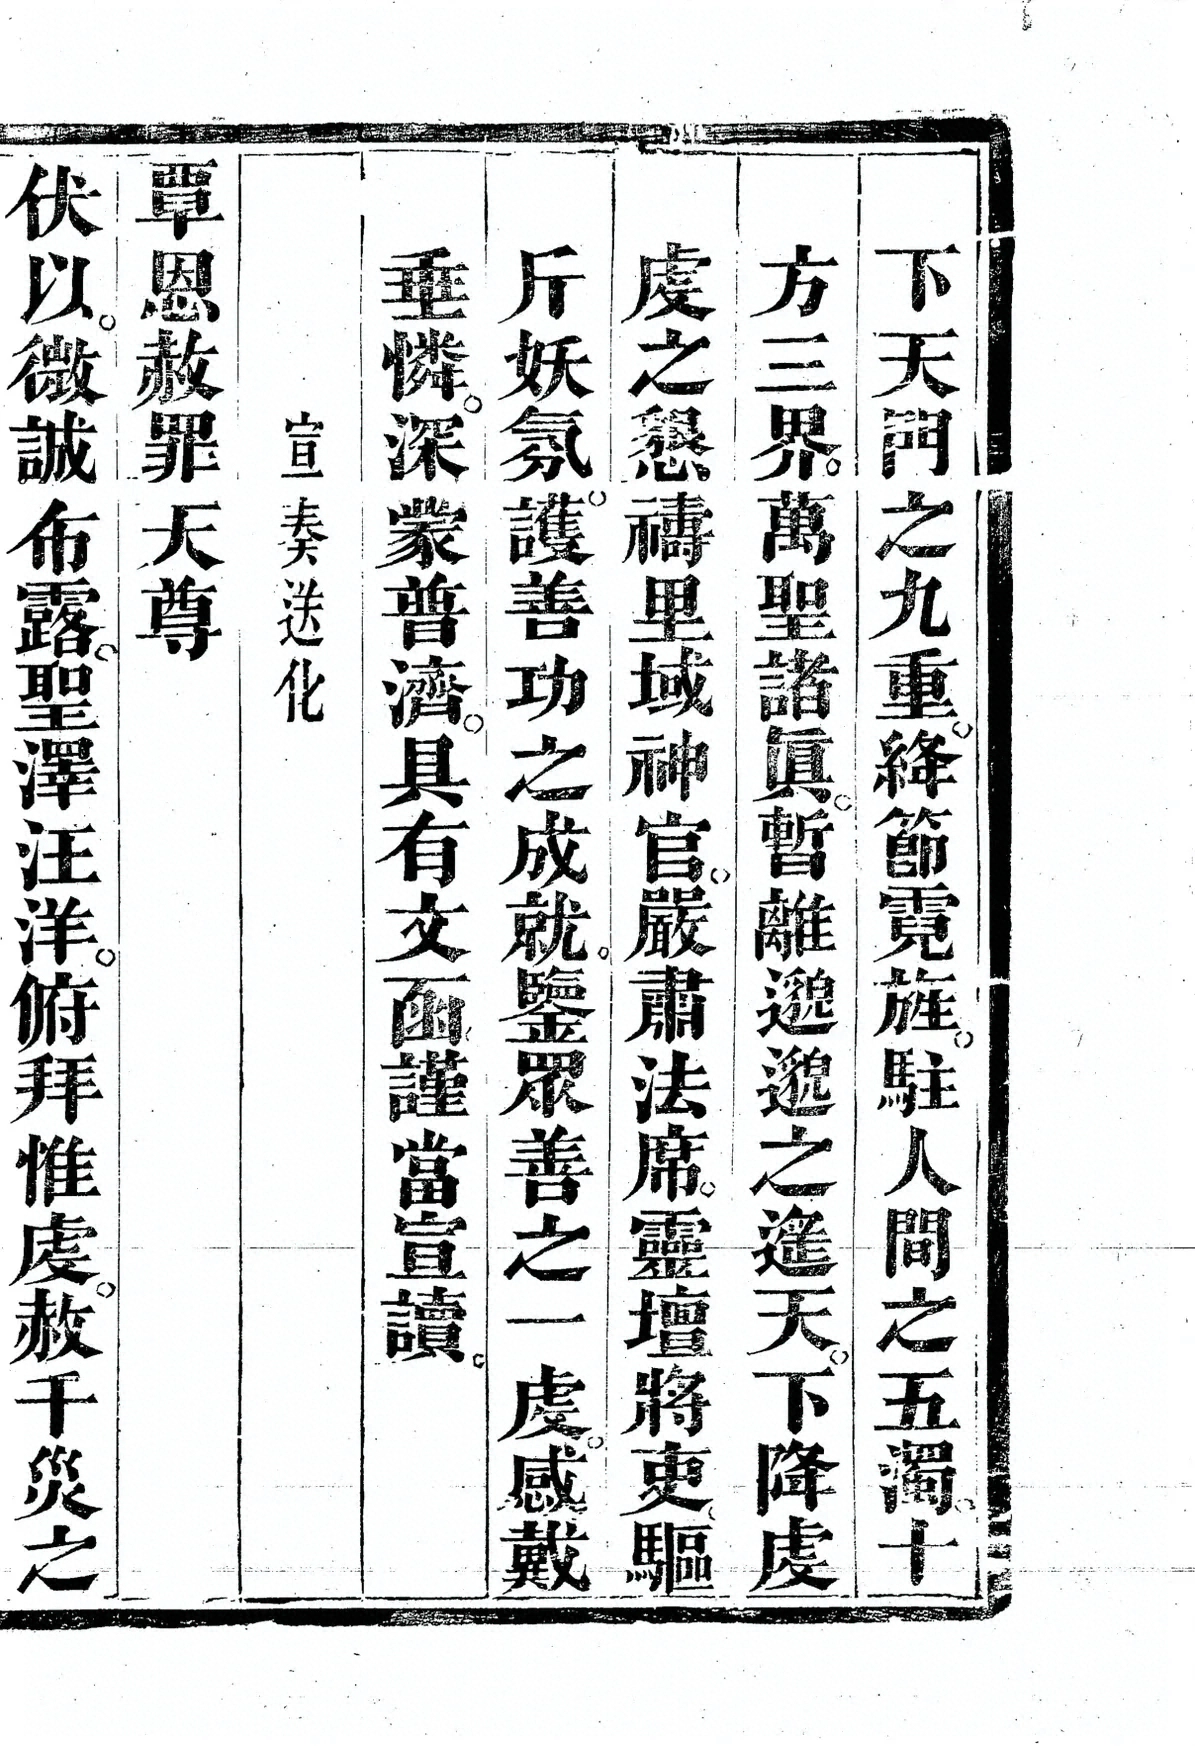 下天門之九重。絳節霓旌。駐人間之五濁。十
方三界。萬聖諸眞。暫離邈邈之遙天。下降虔
虔之懇禱里域神官。嚴肅法席。靈壇將吏。驅
斤妖氛。護善功之成就。鑒眾善之一虔。感戴
垂憐。深蒙普濟。具有文函謹當宣讀。
宣奏送化
覃恩赦罪天尊
伏以。微誠布露。聖澤汪洋。俯拜惟虔。赦千災之